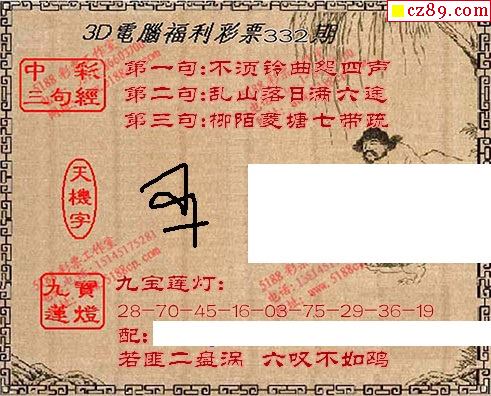 cz89.com
3D電腦福利彩票332期
中彩三句經
第一句:不须铃曲怨四声
第二句:乱山落日满六途
第三句:柳陌菱塘七带疏
天機字
九寶蓮燈
九宝莲灯:
28-70-45-16-03-75-29-36-19
配:
若匪二盘涡 六叹不如鸥